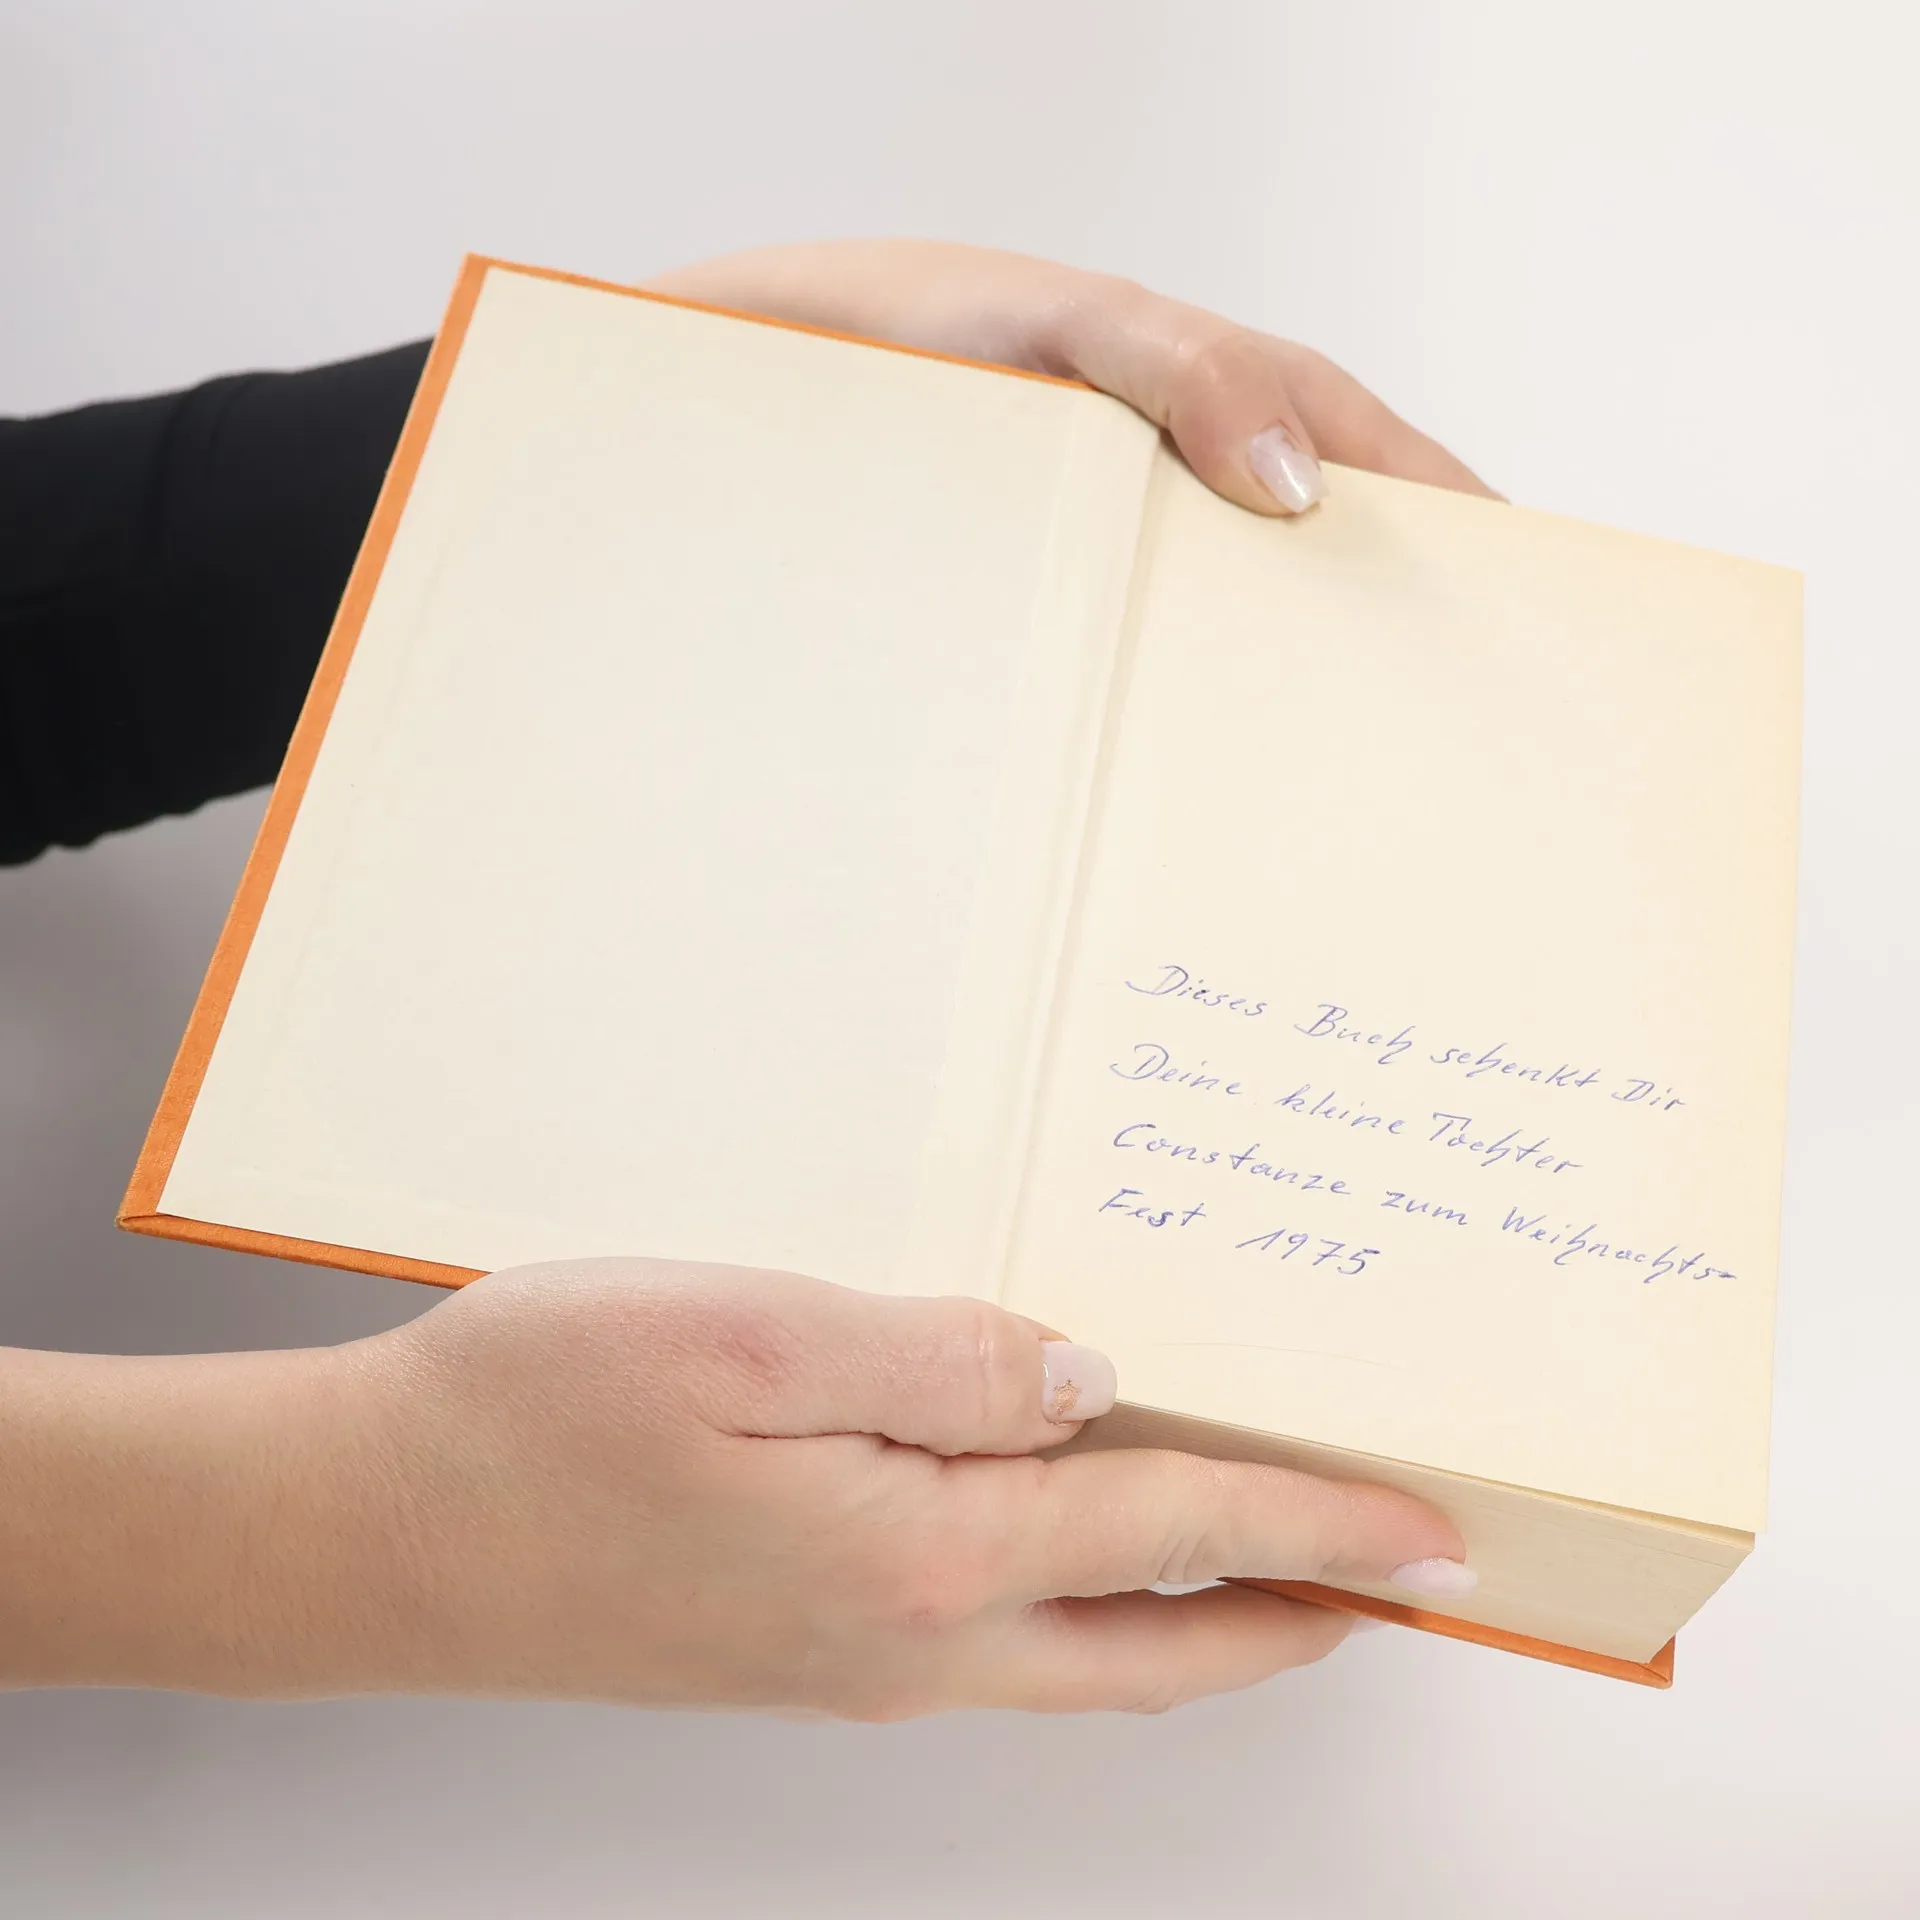 Dieses Buch schenkt Dir
Deine kleine Tochter
Constanze zum Weihnachts-
Fest 1975